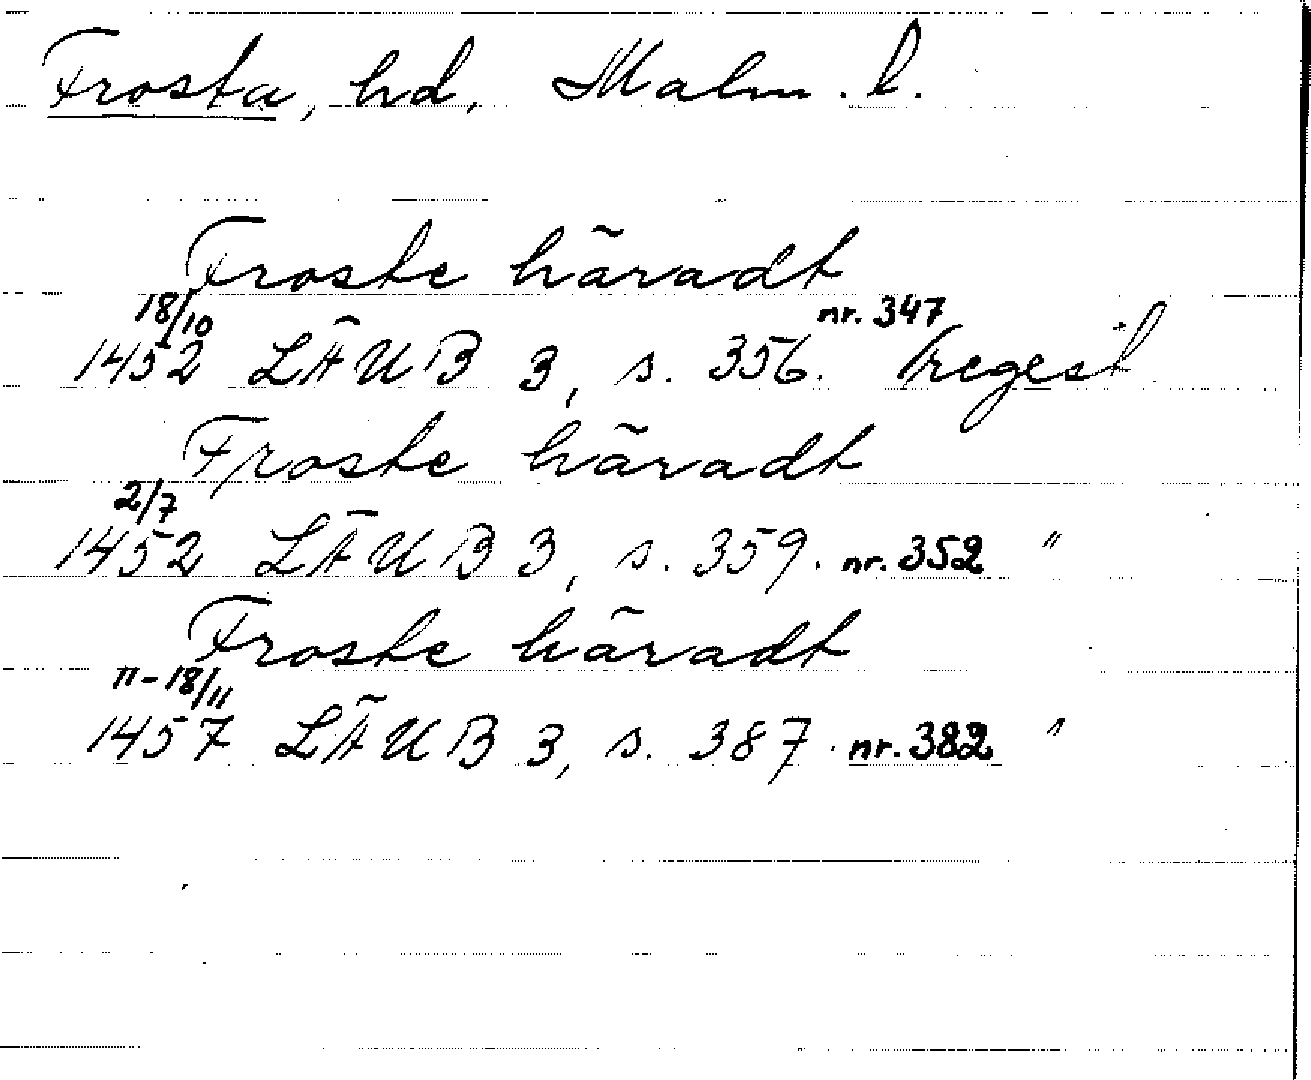 Frosta, hd, Malm. l.
Froste häradt
18/10 nr. 347
1452 LÄUB 3, s. 356. regest
Froste häradt
2/7
1452 LÄUB 3, s. 359. nr. 352 "
Froste häradt
11-18/11
1457 LÄUB 3, s. 387. nr. 382 "